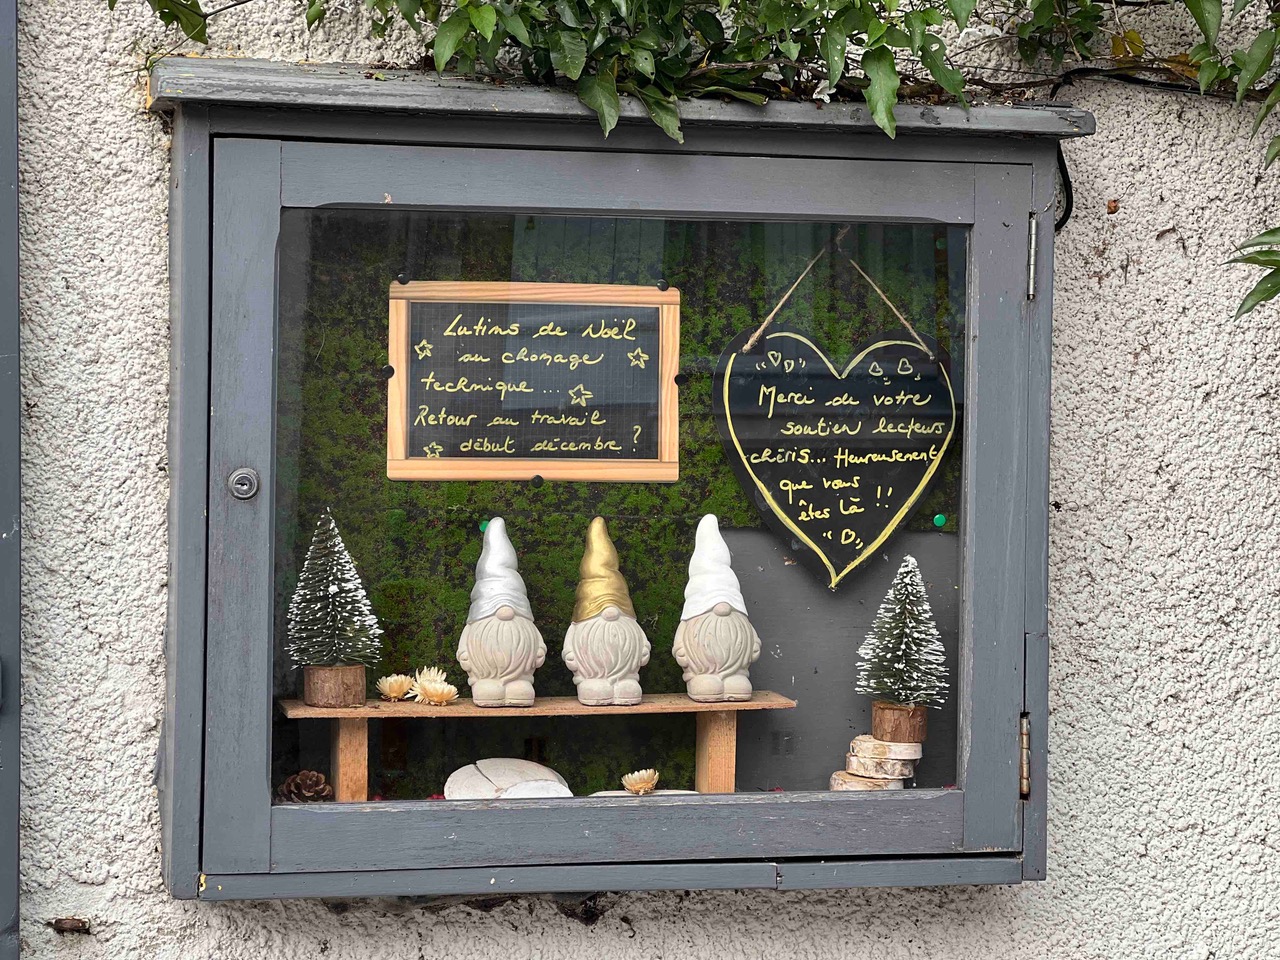 Lutins de Noël
au chomage
technique...
Retour au travail
début décembre ?
Merci de votre
soutien lecteurs
chéris... Heureusement
que vous
êtes là !!